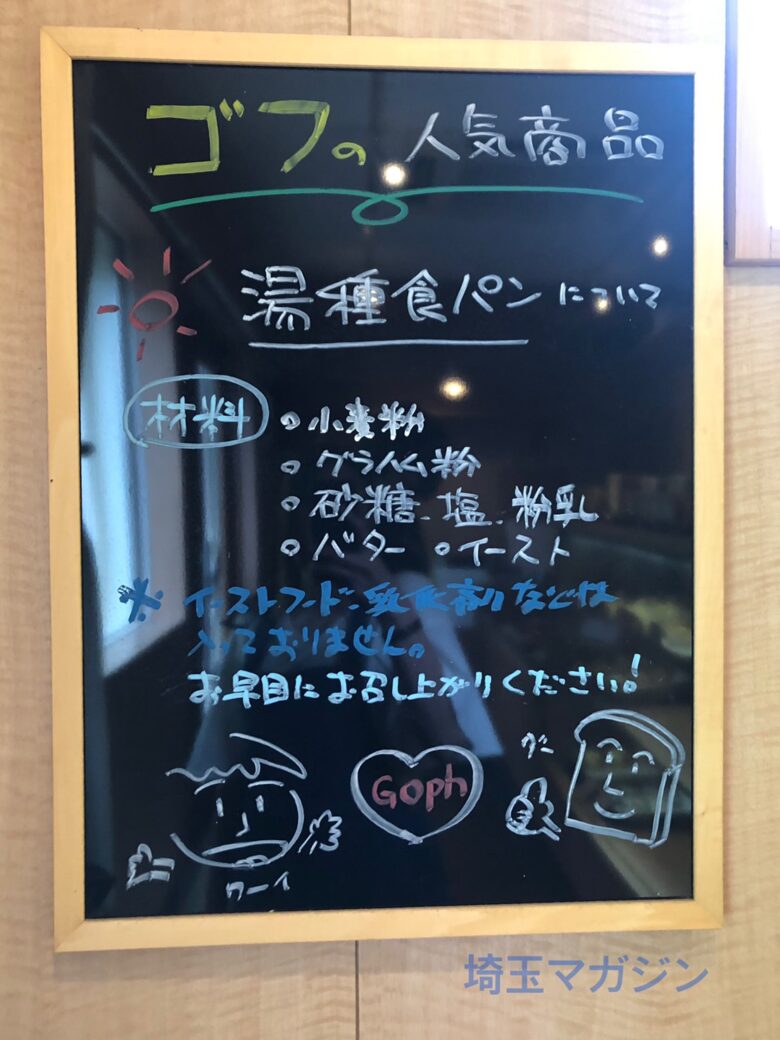 ゴフの人気商品
湯種食パンについて
材料
○小麦粉
○グラハム粉
○砂糖、塩、粉乳
○バター ○イースト
※イーストフード、乳化剤などは
入っておりません。
お早目にお召し上がりください!
グー
Goph
ワーイ
埼玉マガジン